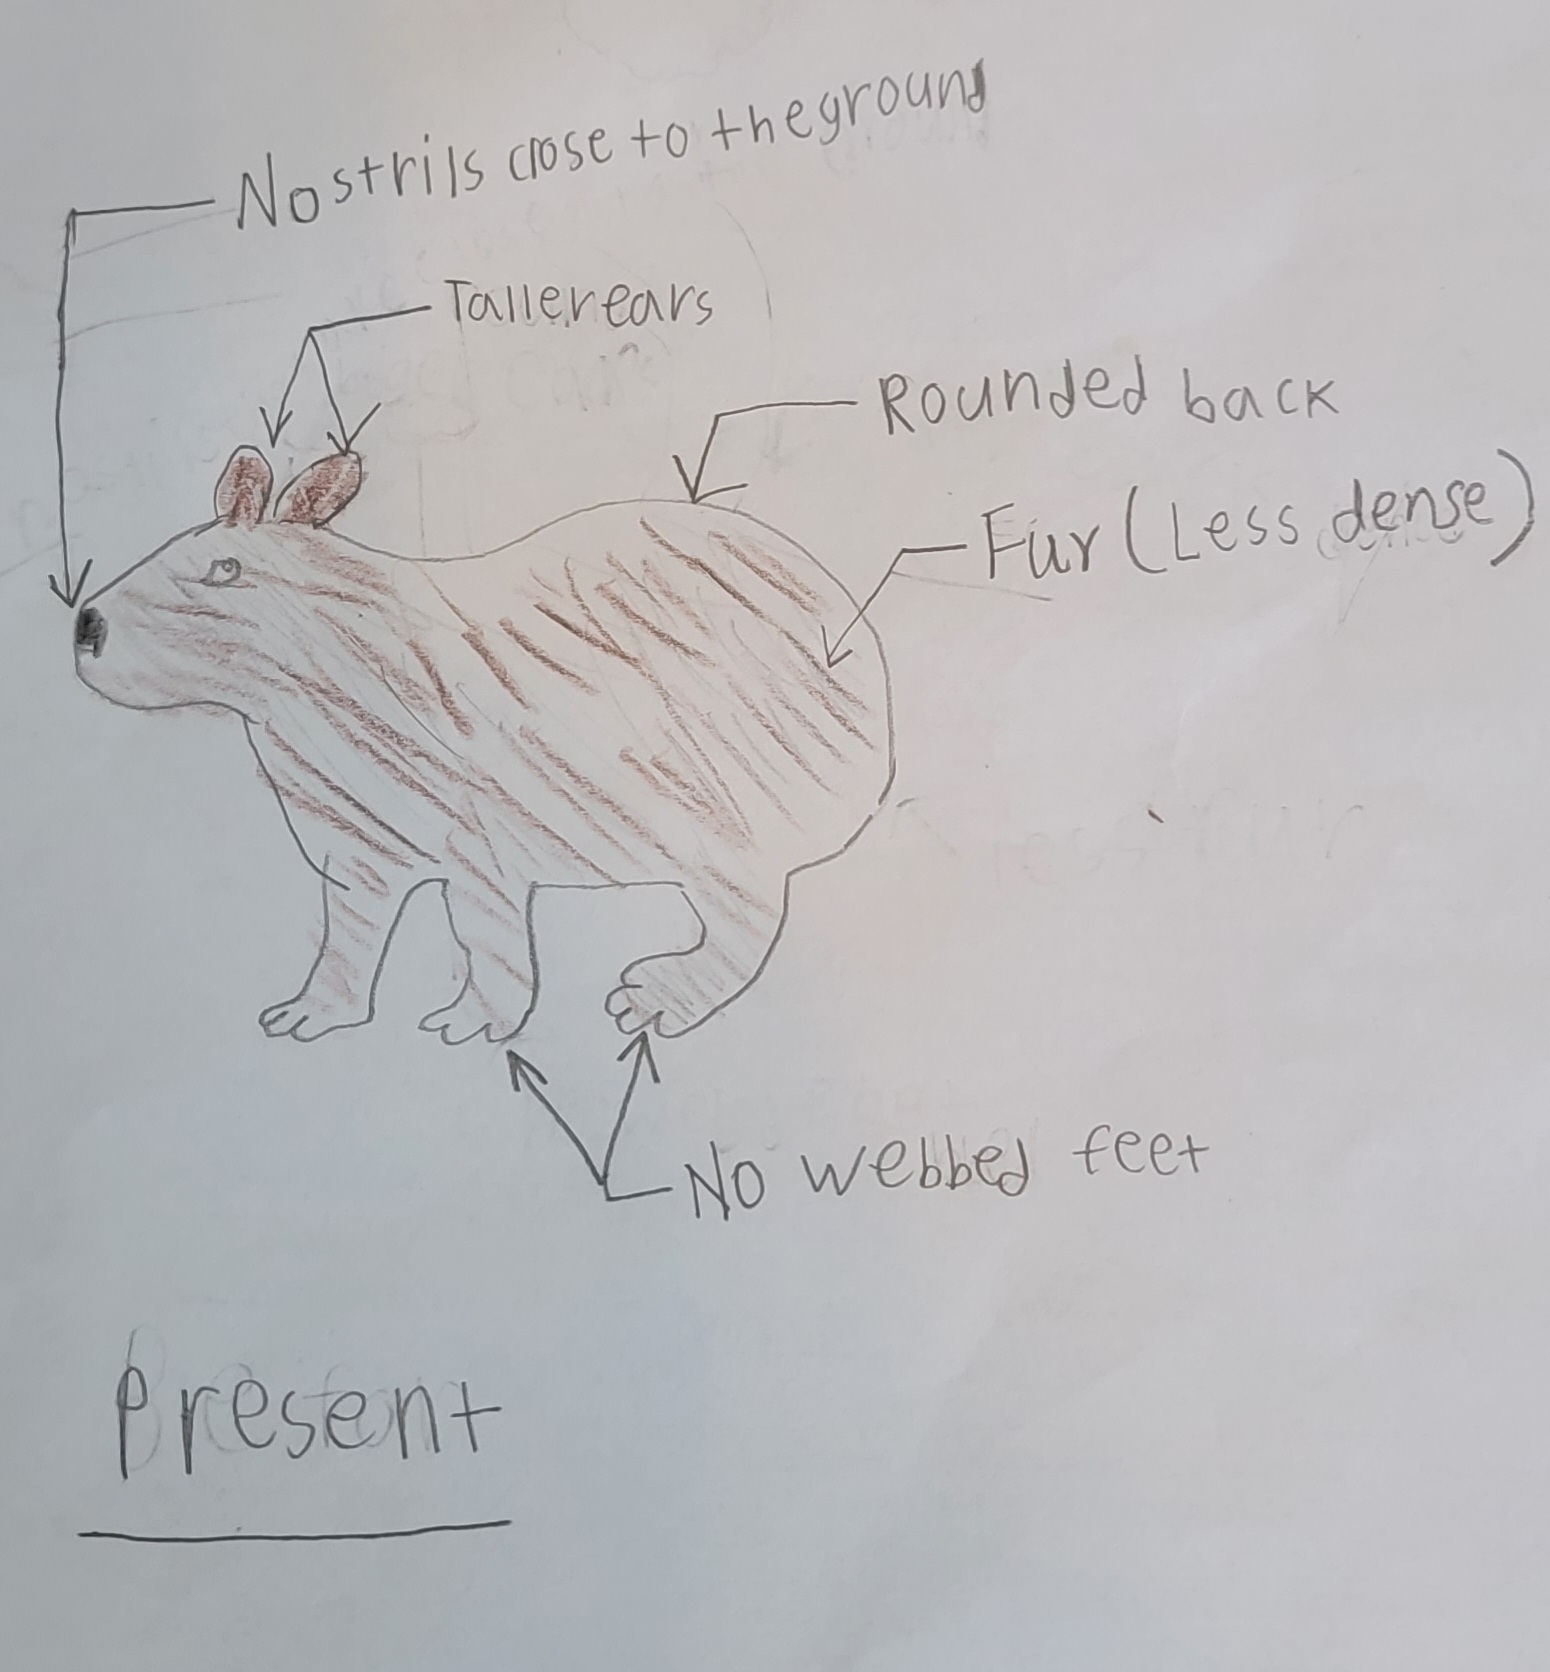 Nostrils close to the ground
Taller ears
Rounded back
Fur (Less dense)
No webbed feet
Present